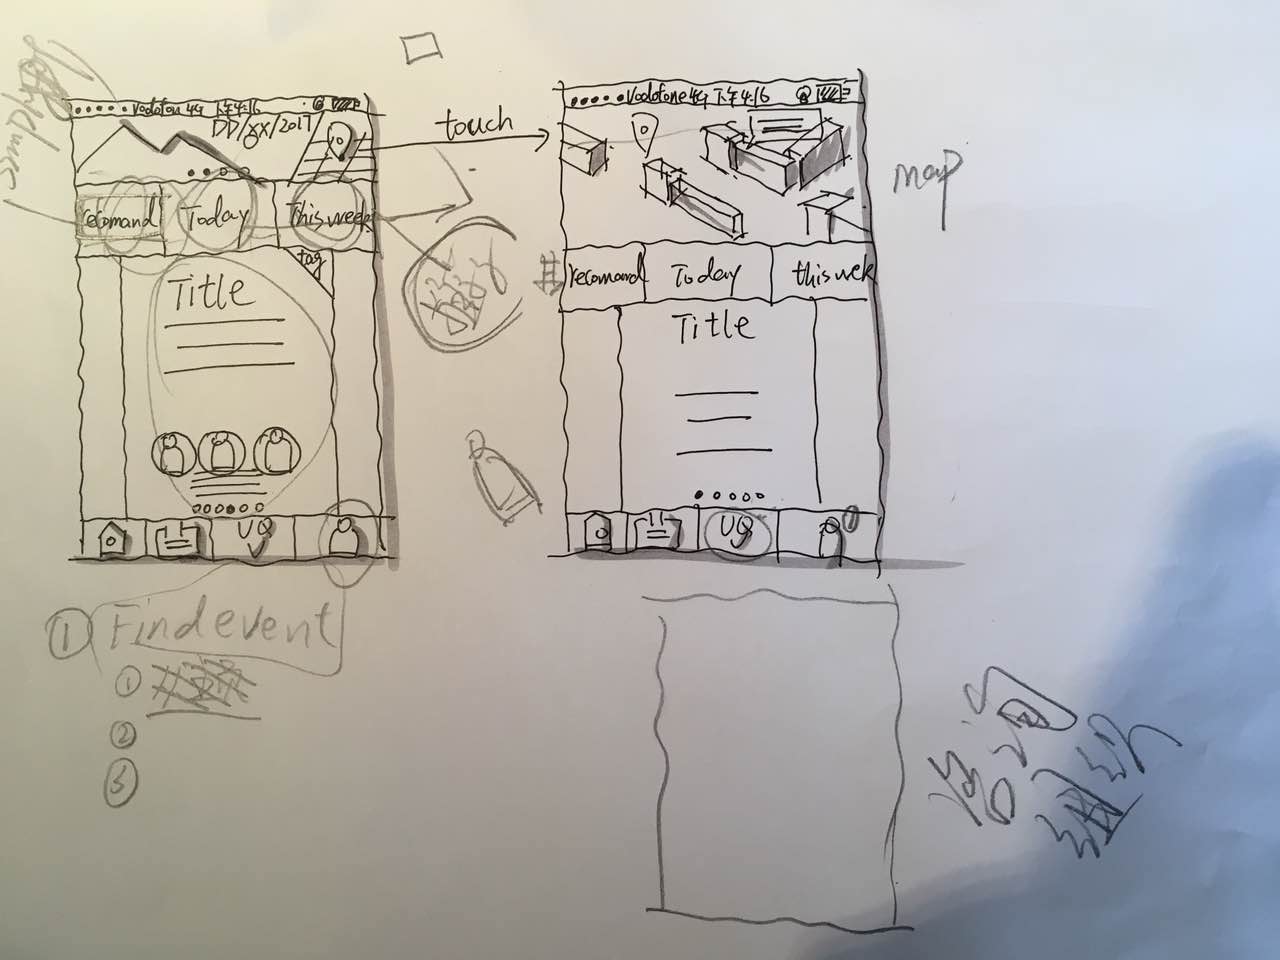 Vodofon 4G 下午4:16
DD/xx/2017
recomand Today This week
tag
Title
UQ
touch
Vodofone 4G 下午4:16
map
recomand Today this wek
Title
UQ
① Find event
①
②
③